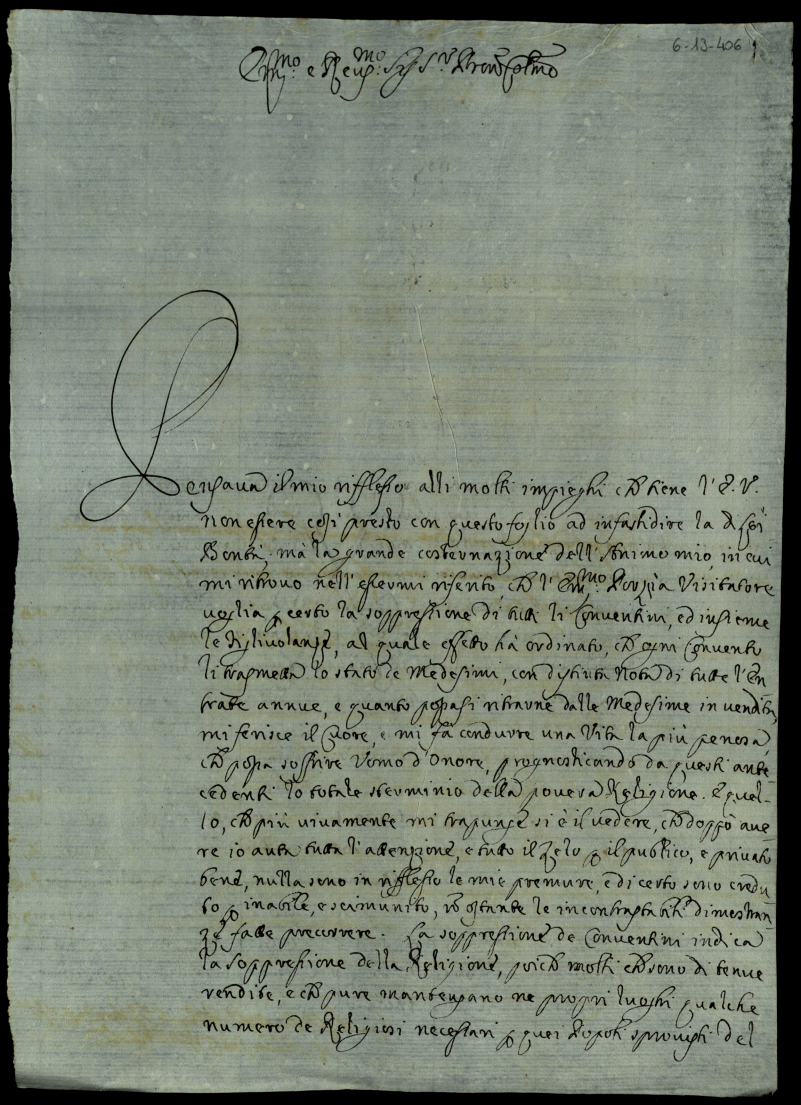 6-13-406
Em.mo e Rev.mo Sig. S.r Pron Colmo
Pensava il mio rifflesso alli molti impieghi ch' tiene l'E. V.
non essere così presto con questo foglio ad infastidire la di Lei
Bontà; mà la grande costernazione dell'Animo mio, in cui
mi ritrovo nell'essermi riferito, ch' l'Em.mo Visitatore
voglia p certo la soppressione di tutti li Conventini, ed insieme
le Figlivolanze, al quale effetto hà ordinato, ch' ogni Convento
li trasmetta lo stato de Medesimi, con distinta Nota di tutte l'En
trate annue, e quanto possasi ritrarne dalle Medesime in vendita,
mi ferisce il Cuore, e mi fà condurre una Vita la più penosa
ch' possa soffrire Uomo d'Onore, prognosticando da questi ante
cedenti lo totale sterminio della povera Religione. E quel-
lo, ch' più vivamente mi trapunge si è il vedere, ch' doppo ave
re io auta tutta l'attenzione, e tutto il Zelo p il publico, e privato
bene, nulla sono in rifflesso le mie premure, e di certo sono credu
to p inabile, e scimunito, n ostante le incontrastabili dimostran
ze fatte precorrere. La soppressione de Conventini indica
la soppressione della Religione, poich' molti ch' sono di tenue
rendite, e ch' pure mantengano ne propri luoghi qualche
numero de Religiosi necessari p quei Popoli sprovisti del